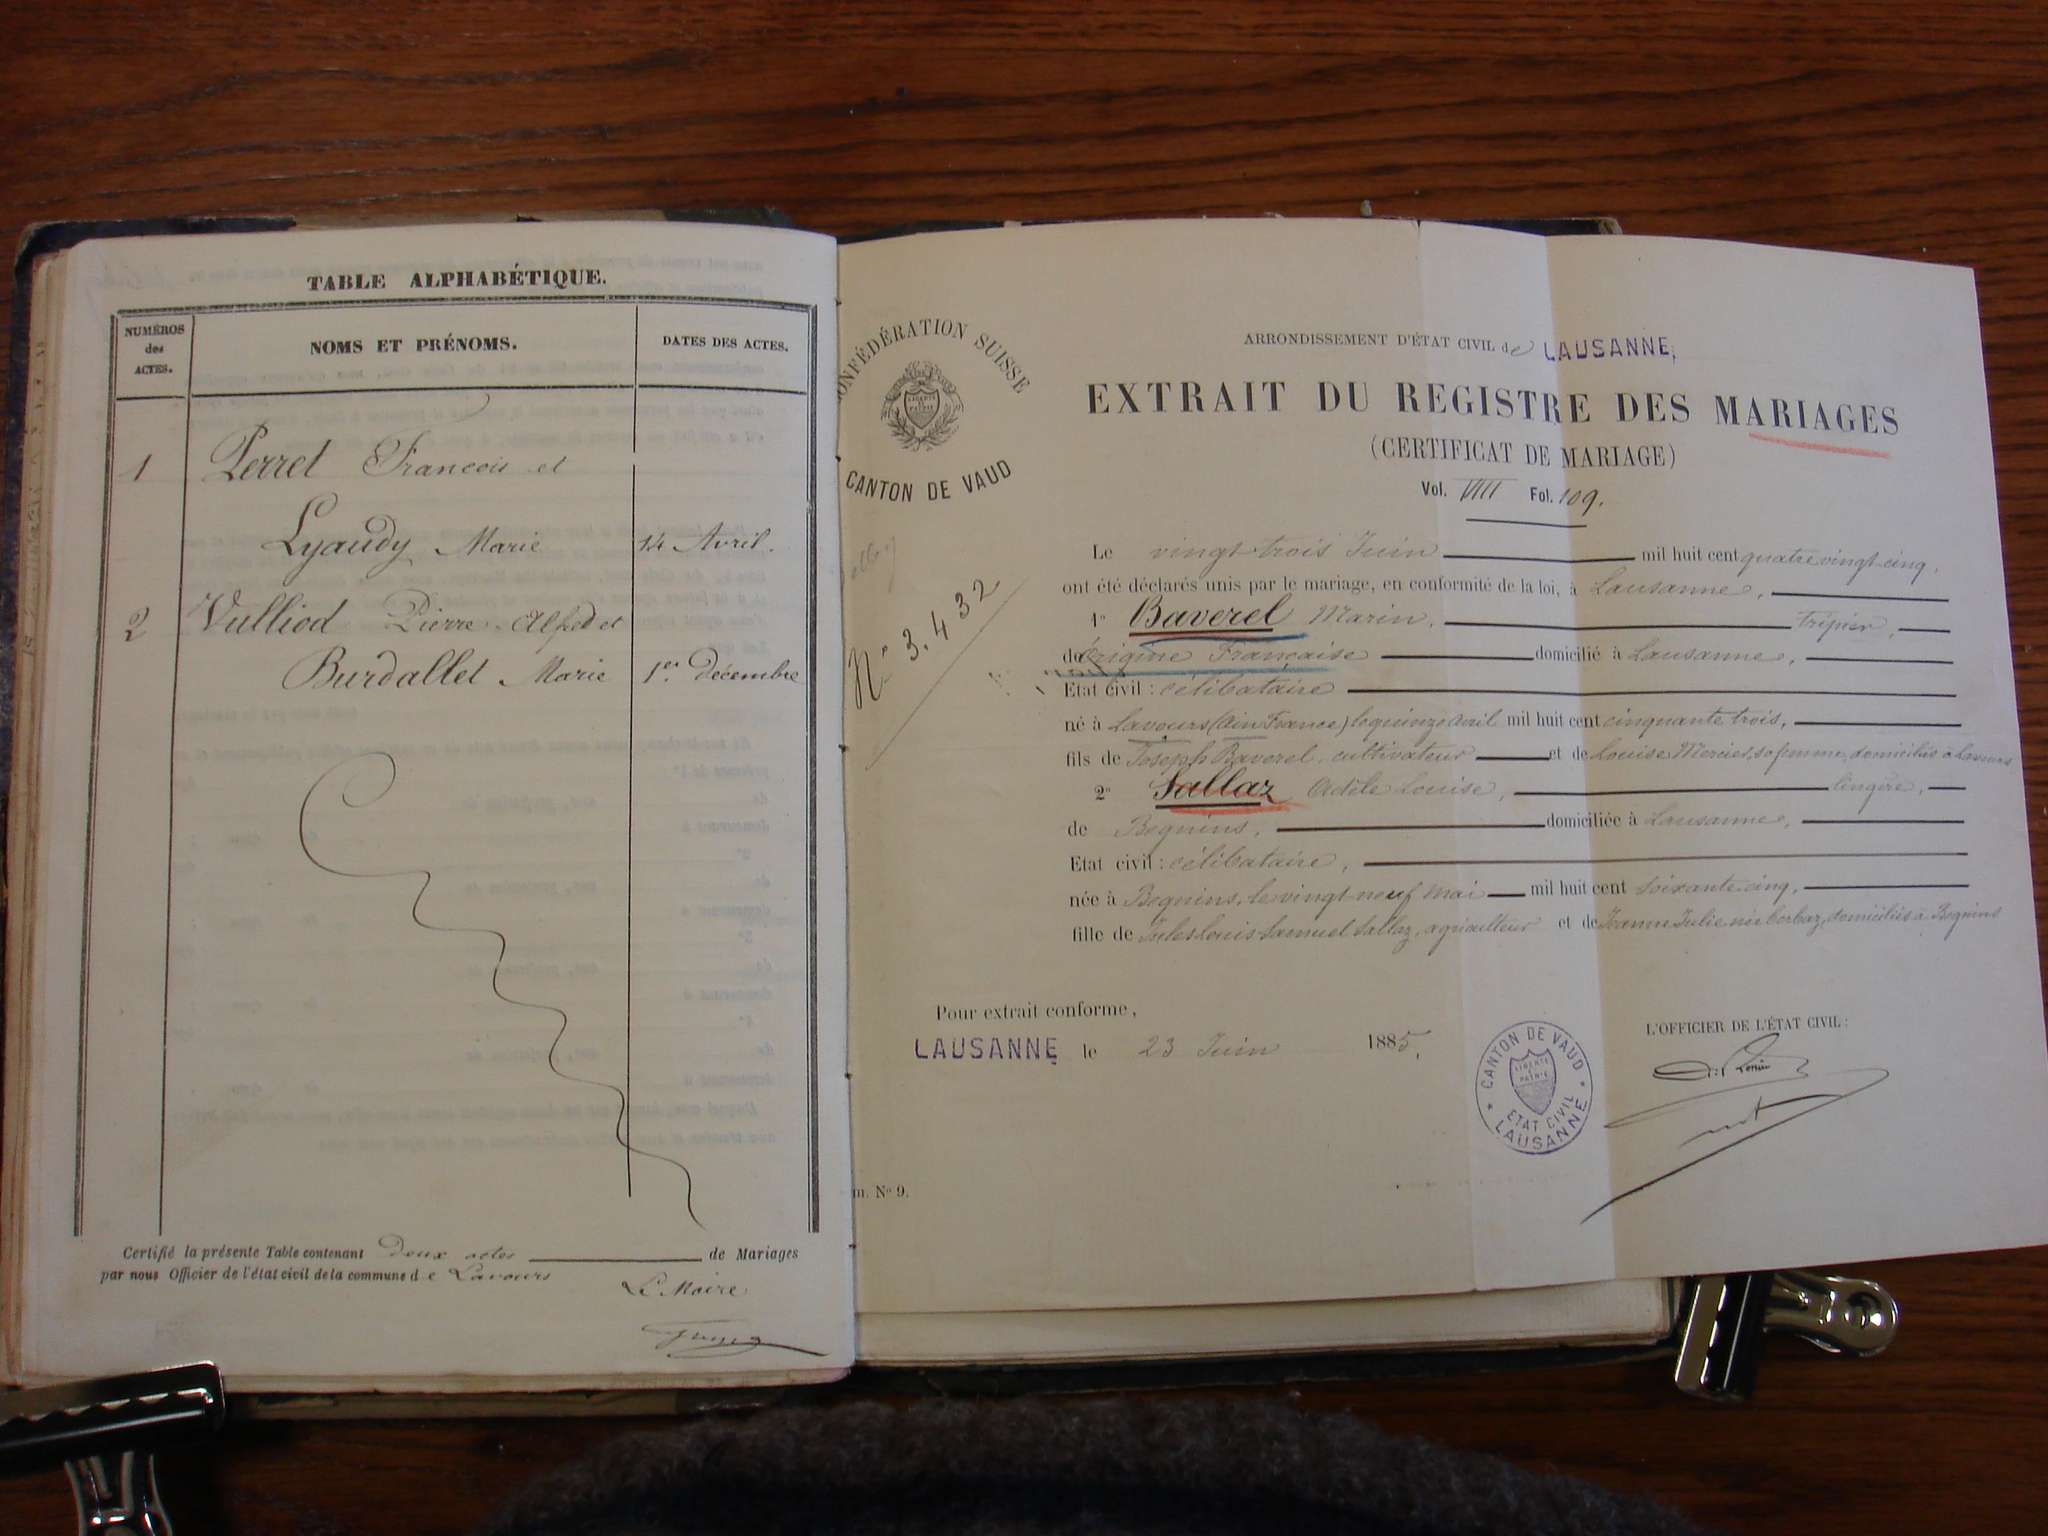 TABLE ALPHABÉTIQUE.
NUMÉROS des ACTES.
NOMS ET PRÉNOMS.
DATES DES ACTES.
1 Perret François et
Lyaudy Marie 14 Avril.
2 Vulliod Pierre Alfred et
Burdallet Marie 1er décembre
Certifié la présente Table contenant Deux actes de Mariages
par nous Officier de l'état civil de la commune de Lavours
Le Maire
CONFÉDÉRATION SUISSE
LIBERTÉ ET PATRIE
CANTON DE VAUD
N° 3.432
ARRONDISSEMENT D'ÉTAT CIVIL de LAUSANNE,
EXTRAIT DU REGISTRE DES MARIAGES
(CERTIFICAT DE MARIAGE)
Vol. VIII Fol. 109.
Le vingt-trois Juin mil huit cent quatre vingt-cinq,
ont été déclarés unis par le mariage, en conformité de la loi, à Lausanne,
1° Baverel Marin, tripier,
d'origine Française domicilié à Lausanne,
Etat civil : célibataire
né à Lavours (Ain France) le quinze avril mil huit cent cinquante trois,
fils de Joseph Baverel, cultivateur et de Louise Mercier, sa femme, domiciliés à Lavours
2° Sallaz Adèle Louise, lingère,
de Begnins, domiciliée à Lausanne,
Etat civil : célibataire,
née à Begnins, le vingt-neuf mai mil huit cent soixante-cinq,
fille de Jules Louis Samuel Sallaz, agriculteur et de Jeanne Julie née Corbaz, domiciliés à Begnins
Pour extrait conforme,
LAUSANNE le 23 Juin 1885.
L'OFFICIER DE L'ÉTAT CIVIL :
CANTON DE VAUD
LIBERTÉ ET PATRIE
ETAT CIVIL
LAUSANNE
m. N° 9.